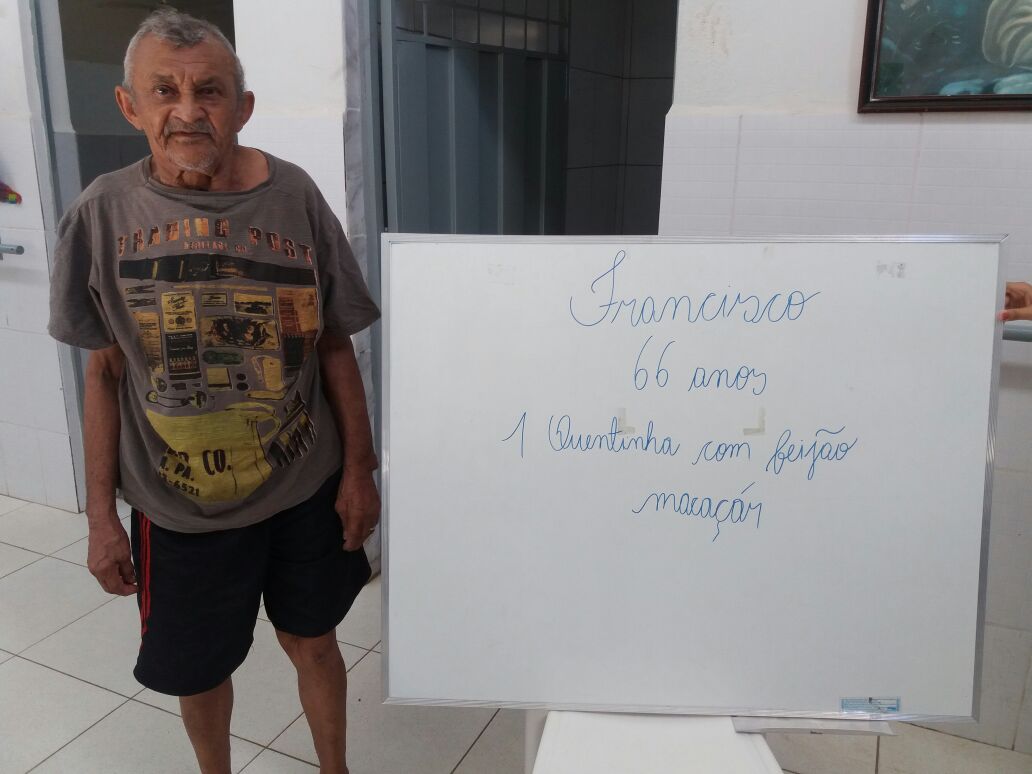 TRADING POST
CO.
6521
Francisco
66 anos
1 Quentinha com feijão
macaçár